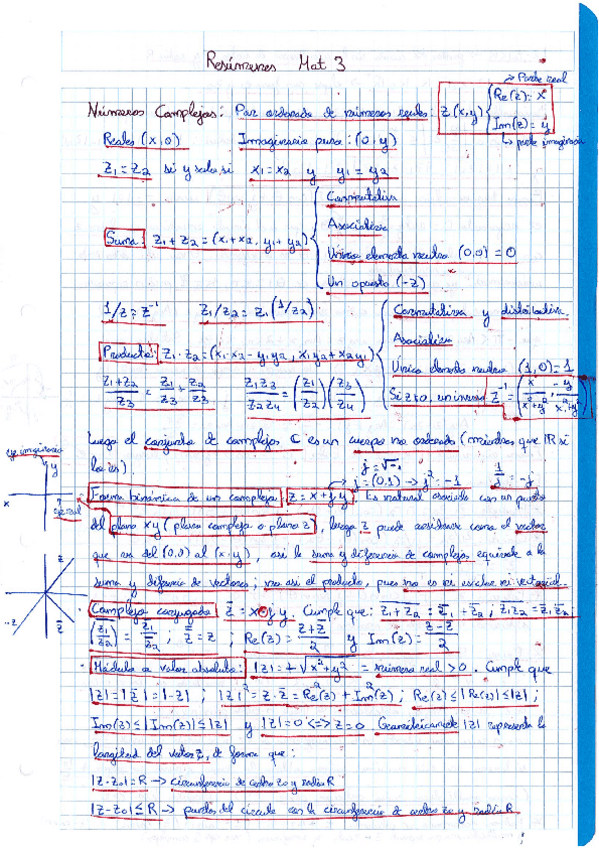 Resúmenes Mat 3
→ Parte real
Números Complejos: Par ordenado de números reales: Z(x,y) { Re(z)= x
Im(z)= y
↳ parte imaginaria
Reales (x,0) Imaginario puro: (0,y)
Z1 = Z2 si y solo si x1=x2 y y1=y2
Suma: Z1+Z2 = (x1+x2, y1+y2) { Conmutativa
Asociativa
Único elemento neutro (0,0) = 0
Un opuesto (-z)
1/z = z^-1 Z1/Z2 = Z1(1/Z2)
Producto: Z1·Z2 = (x1·x2 - y1y2, x1y2+x2y1) { Conmutativa y distributiva
Asociativa
Único elemento neutro (1,0)=1
Si z≠0, un inverso z^-1 = (x/(x²+y²), -y/(x²+y²))
(Z1+Z2)/Z3 = Z1/Z3 + Z2/Z3 Z1Z3/Z2Z4 = (Z1/Z2)(Z3/Z4)
Luego el conjunto de complejos C es un cuerpo no ordenado (mientras que R si
lo es)
eje imaginario
y
x
eje real
j=√-1
→ j=(0,1) → j²=-1 1/j = -j
Forma binómica de un complejo Z = x+jy. Es natural asociarlo con un punto
del plano xy (plano complejo o plano z), luego z puede considerarse como el vector
que va del (0,0) al (x,y), así la suma y diferencia de complejos equivale a la
suma y diferencia de vectores; no así el producto, pues no es ni escalar ni vectorial.
z
-z
z̄
Complejo conjugado z̄ = x-jy. Cumple que: \overline{z1+z2} = z̄1+z̄2; \overline{z1z2} = z̄1z̄2;
\overline{(z1/z2)} = z̄1/z̄2; z̄̄=z; Re(z)= (z+z̄)/2 y Im(z)= (z-z̄)/2
Módulo o valor absoluto: |z| = +√(x²+y²) = número real >0. Cumple que
|z|=|z̄|=|-z|; |z|²=z·z̄=Re²(z)+Im²(z); Re(z)≤|Re(z)|≤|z|;
Im(z)≤|Im(z)|≤|z| y |z|=0<=>z=0. Geométricamente |z| representa la
longitud del vector z, de forma que:
|z-z0|=R → circunferencia de centro z0 y radio R
|z-z0|≤R → puntos del círculo con la circunferencia de centro z0 y radio R